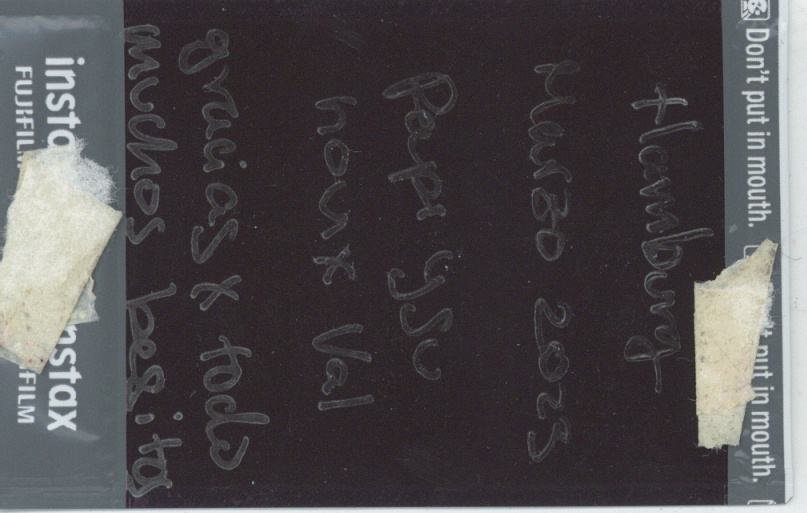 Don't put in mouth. 't put in mouth.
Hamburg
Marzo 2025
Papi y su
novix Val
gracias x todo
muchos besitos
insta nstax
FUJIFIL FILM